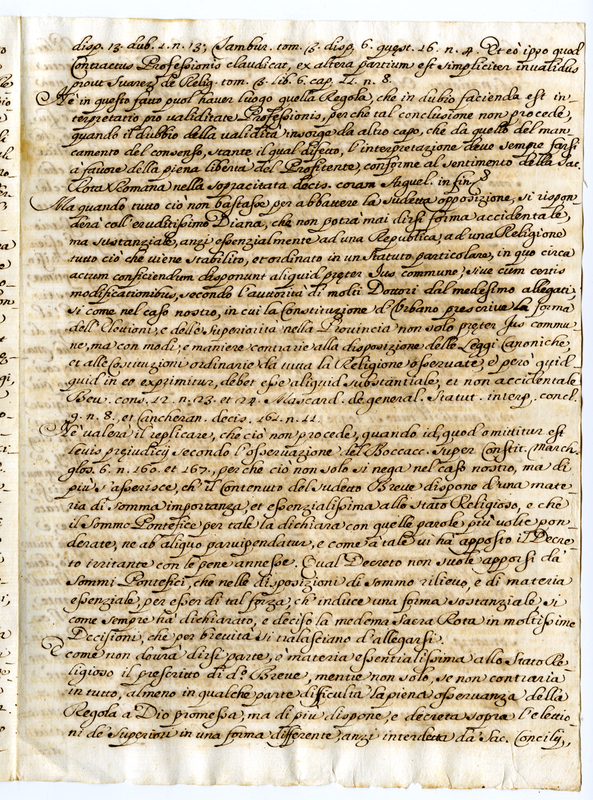 disp. 13. dub. 1. n. 13; Tambur. tom. 3. disp. 6. quęst. 16. n. 4. Et eò ipso quod
Contractus Professionis claudicat, ex altera partium est simpliciter invalidus
prout Suarez de Relig. tom. 3. lib. 6. cap. n. 8.
Nè in questo fatto puol haver luogo quella Regola, che in dubio facienda est in-
terpretatio pro validitate Professionis, perche tal conclusione non procede,
quando il dubbio della validità insorge da altro capo, che da quello del man-
camento del consenso, stante il qual difetto, l'interpretazione deve sempre farsi
a favore della piena libertà del Profitente, conforme al sentimento della Sac.
Rota Romana nella sopracitata decis. coram in fin.
Ma quando tutto ciò non bastasse per abbattere la sudetta opposizione, si rispon-
derà coll'eruditissimo Diana, che non potrà mai dirsi forma accidentale,
ma sustanziale, anzi essenzialmente ad una Republica, ad una Religione
tutto ciò che viene stabilito, et ordinato in un Statuto particolare, in quo circa
actum conficiendum disponunt aliquid pręter Jus commune, sive cum certis
modificationibus, secondo l'autorità di molti Dottori dal medesimo allegati,
si come nel caso nostro, in cui la Constituzione d'Urbano prescrive la forma
dell'Elezioni, e delle Superiorità nella Provincia non solo pręter Jus commu-
ne, ma con modi, e maniere contrarie alla disposizione delle Leggi Canoniche,
et alle Costituzioni ordinarie da tutta la Religione osservate; e però quid-
quid in eo exprimitur, debet esse aliquid substantiale, et non accidentale
cons. 12. n. 23. et 24. Mascard. de general. Statut. interp. concl.
9. n. 8., et Cancheran. decis. 161. n. 11.
Nè valerà il replicare, che ciò non procede, quando id, quod omittitur est
levis prejudicij secondo l'osservazione del Boccacc. super Constit. March.
glos. 6. n. 160. et 167., perche ciò non solo si nega nel caso nostro, ma di
più s'asserisce, ch'il contenuto del sudetto Breve dispone d'una mate-
ria di somma importanza, et essenzialissima allo stato Religioso, e che
il Sommo Pontefice per tale la dichiara con quelle parole più volte pon-
derate, ne ab aliquo parvipendatur, e come à tale vi hà apposto il Decre-
to irritante con le pene annesse. Qual Decreto non suole apporsi dà
Sommi Pontefici, che nelle disposizioni di sommo rilievo, e di materia
essenziale, per esser di tal forza, ch'induce una forma sostanziale si
come sempre hà dichiarato, e deciso la medema Sacra Rota in moltissime
Decisioni, che per brevità si tralasciano d'allegarsi.
E come non dourà dirsi parte, ò materia essentialissima allo Stato Re-
ligioso il prescritto di d.º Breve, mentre non solo, se non contraria
in tutto, almeno in qualche parte difficulta la piena osservanza della
Regola à Dio promessa, ma di più dispone, e decreta sopra l'elettio
ni de Superiori in una forma differente, anzi interdetta dà Sac. Concilij,